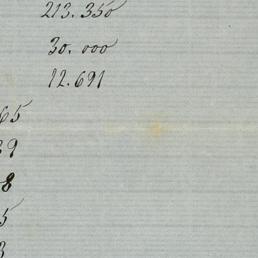 213.350
30.000
12.691
65
39
8
5
3